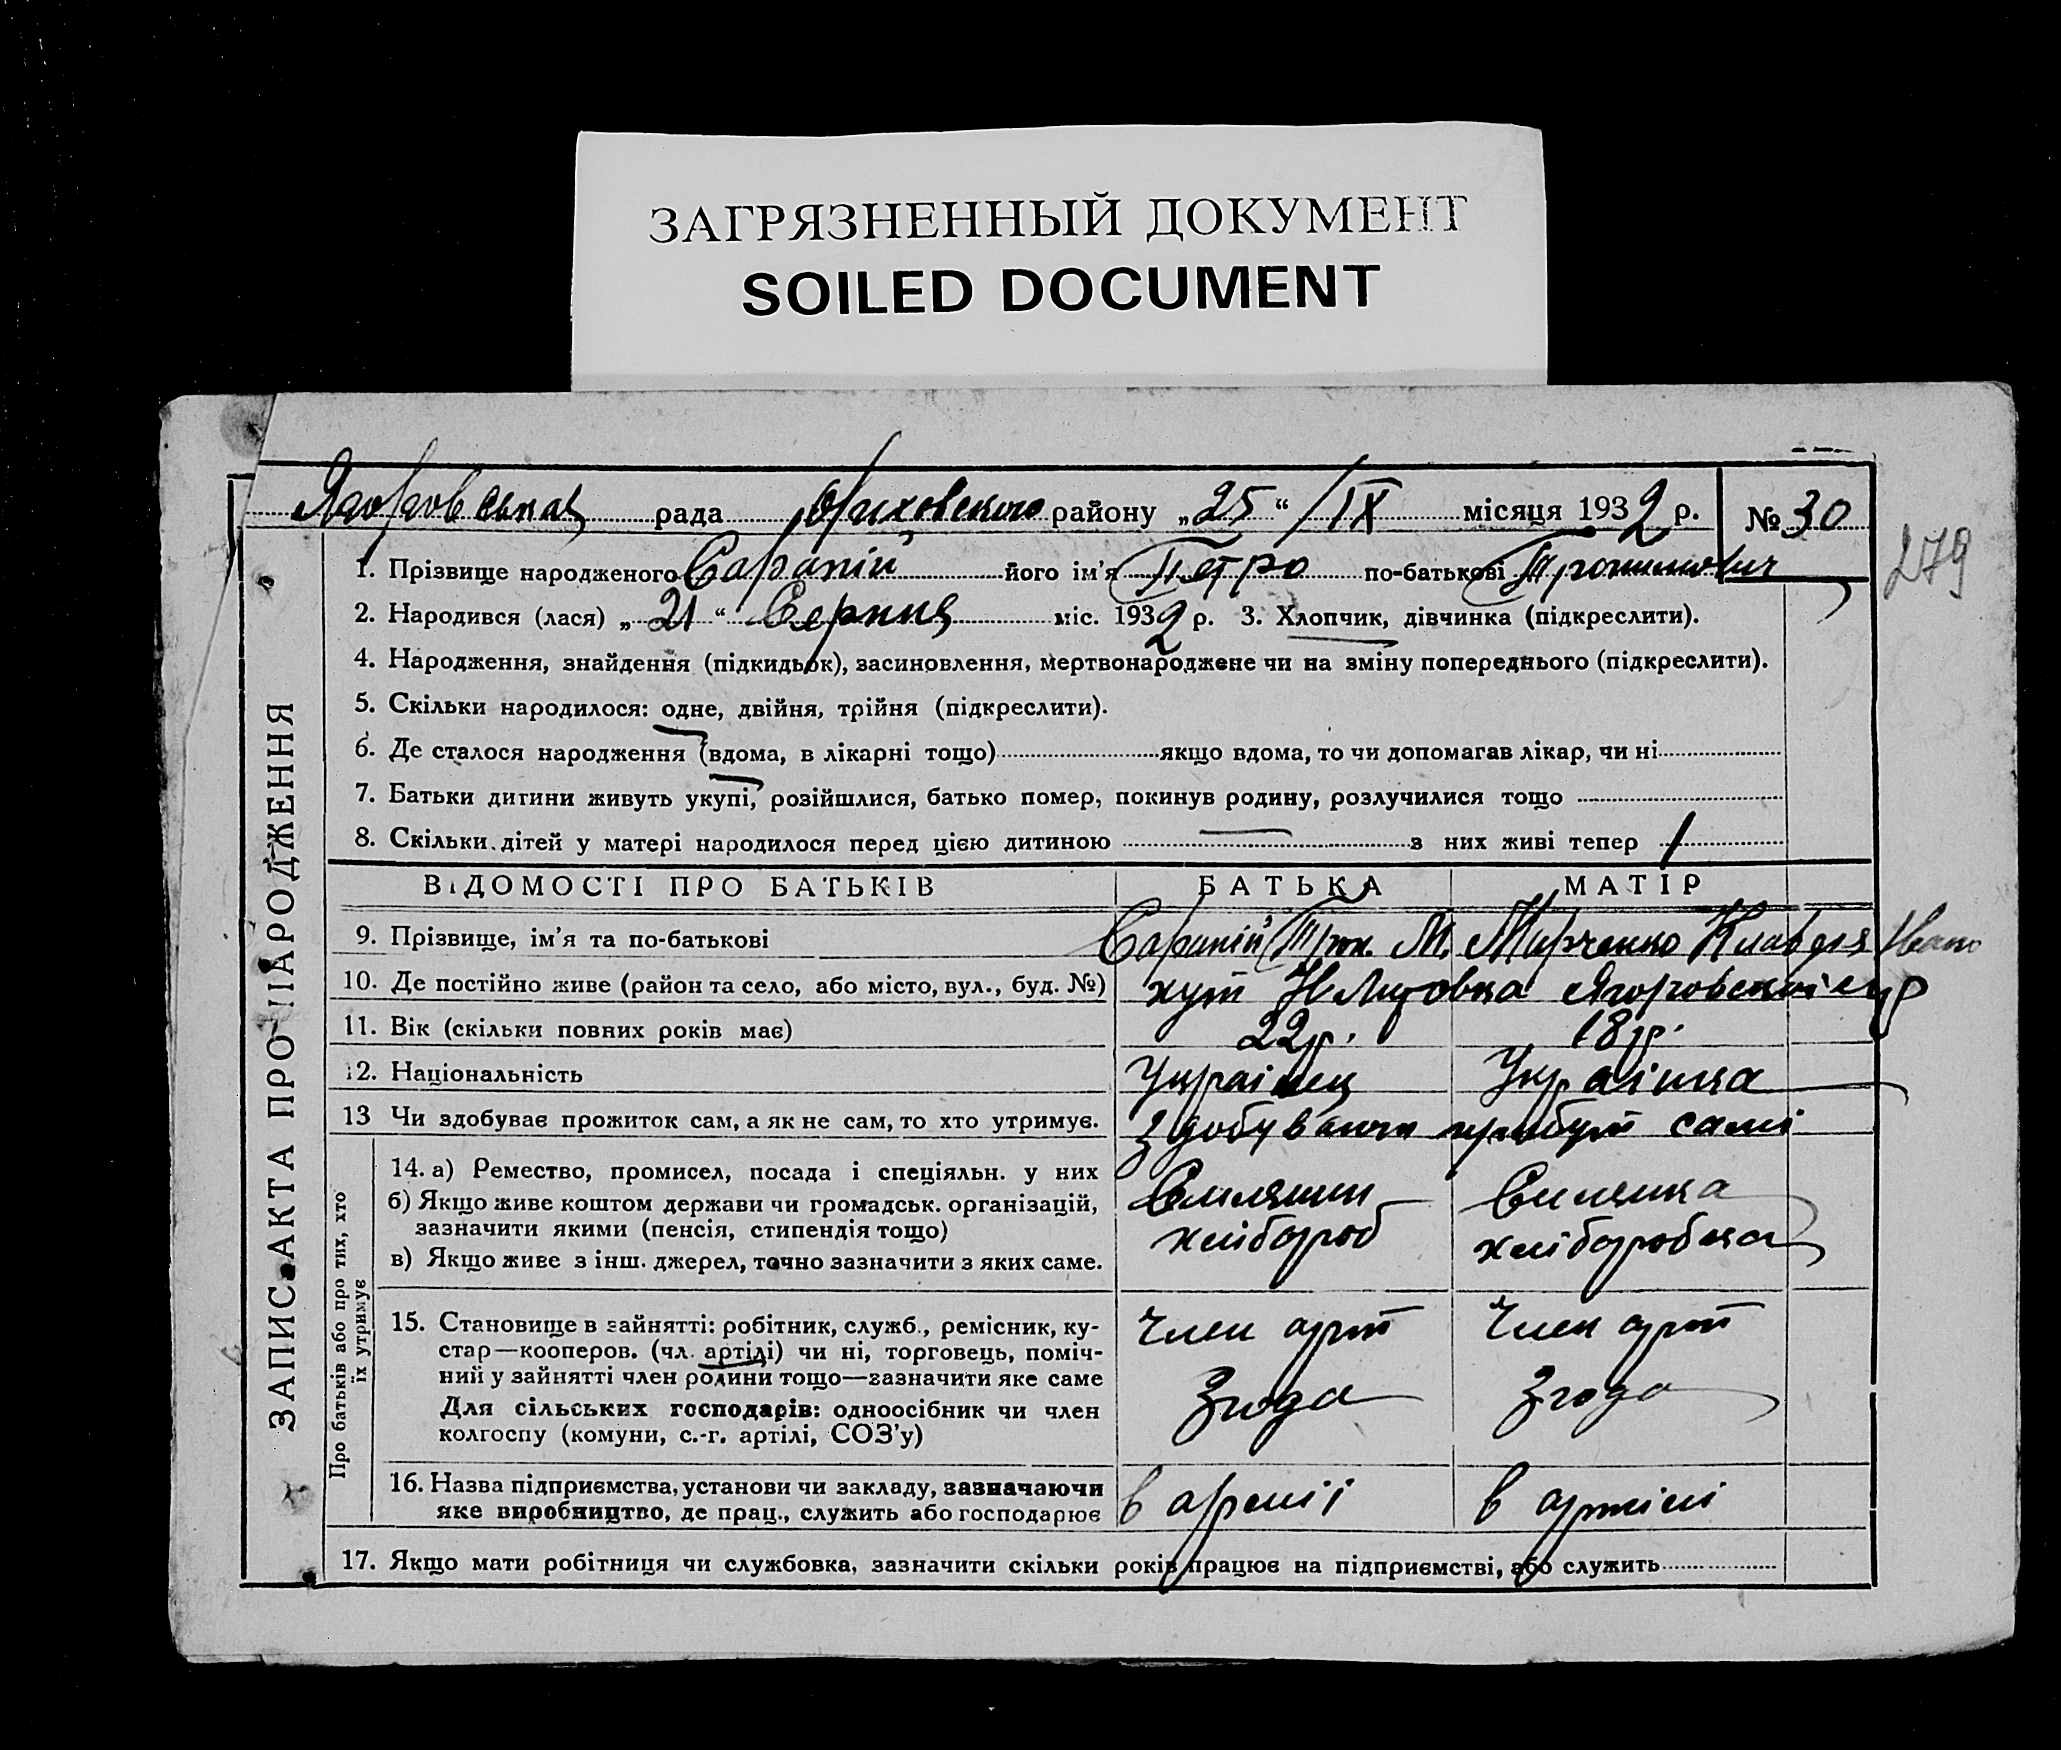 ЗАГРЯЗНЕННЫЙ ДОКУМЕНТ
SOILED DOCUMENT
рада Оріховського району „25“ /IX місяця 1932 р. № 30
279
1. Прізвище народженого Сарапій його ім'я Петро по-батькові Трохимович
2. Народився (лася) „21“ Серпня міс. 1932 р. 3. Хлопчик, дівчинка (підкреслити).
4. Народження, знайдення (підкидьок), засиновлення, мертвонароджене чи на зміну попереднього (підкреслити).
5. Скільки народилося: одне, двійня, трійня (підкреслити).
6. Де сталося народження (вдома, в лікарні тощо) якщо вдома, то чи допомагав лікар, чи ні
7. Батьки дитини живуть укупі, розійшлися, батько помер, покинув родину, розлучилися тощо
8. Скільки дітей у матері народилося перед цією дитиною — з них живі тепер 1
ЗАПИС АКТА ПРО НАРОДЖЕННЯ
ВІДОМОСТІ ПРО БАТЬКІВ БАТЬКА МАТІР
9. Прізвище, ім'я та по-батькові Сарапій Трох. М. Марченко Клавдія Івано
10. Де постійно живе (район та село, або місто, вул., буд. №) хут
11. Вік (скільки повних років має) 22р. 18р.
12. Національність Українец Українка
13 Чи здобуває прожиток сам, а як не сам, то хто утримує. самі
Про батьків або про тих, хто їх утримує
14. а) Ремество, промисел, посада і спеціяльн. у них
б) Якщо живе коштом держави чи громадськ. організацій,
зазначити якими (пенсія, стипендія тощо)
в) Якщо живе з інш. джерел, точно зазначити з яких саме.
Силянин Силянка
хлібороб хліборобка
15. Становище в зайнятті: робітник, служб., ремісник, ку-
стар—кооперов. (чл. артілі) чи ні, торговець, поміч-
ний у зайнятті член родини тощо—зазначити яке саме
Для сільських господарів: одноосібник чи член
колгоспу (комуни, с.-г. артілі, СОЗ'у)
Член арт Член арт
Згода Згода
16. Назва підприємства, установи чи закладу, зазначаючи
яке виробництво, де прац., служить або господарює
в армії в артілі
17. Якщо мати робітниця чи службовка, зазначити скільки років працює на підприємстві, або служить